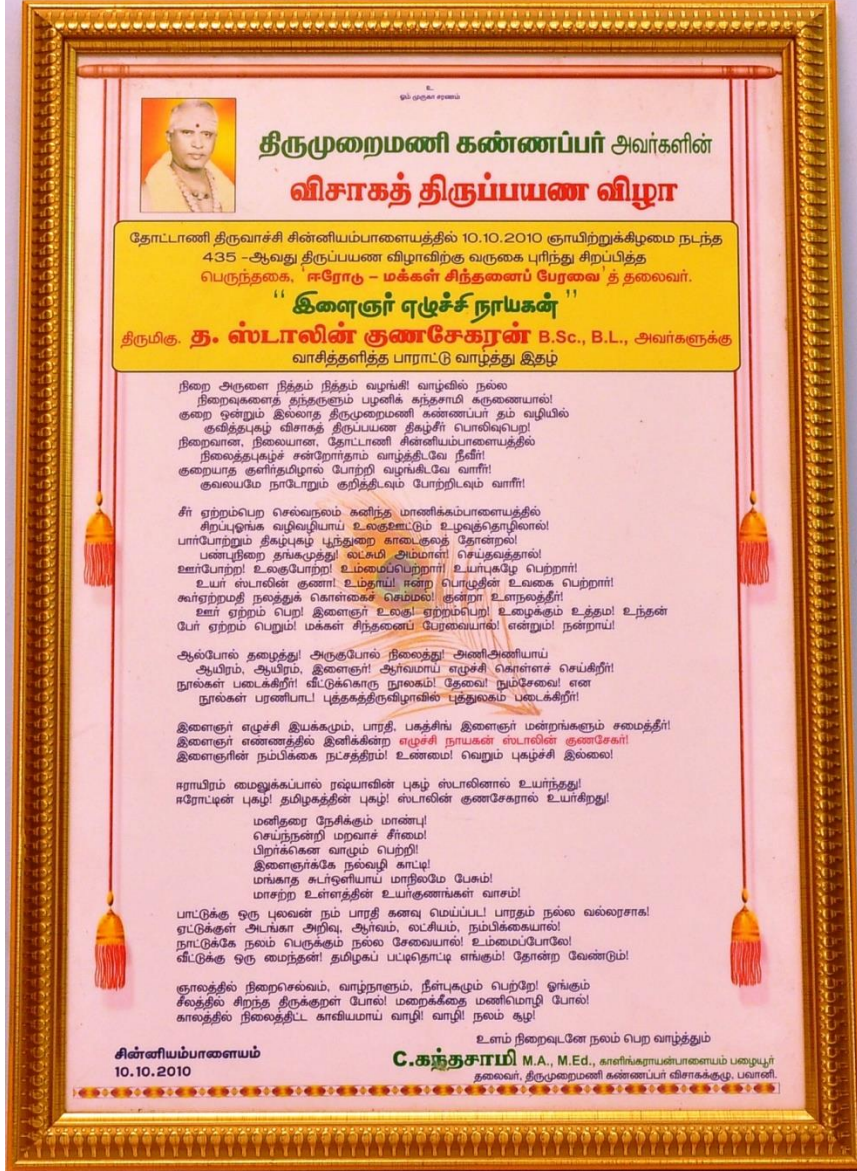 உ
ஓம் முருகா சரணம்
திருமுறைமணி கண்ணப்பர் அவர்களின்
விசாகத் திருப்பயண விழா
தோட்டாணி திருவாச்சி சின்னியம்பாளையத்தில் 10.10.2010 ஞாயிற்றுக்கிழமை நடந்த
435 -ஆவது திருப்பயண விழாவிற்கு வருகை புரிந்து சிறப்பித்த
பெருந்தகை, 'ஈரோடு – மக்கள் சிந்தனைப் பேரவை'த் தலைவர்.
" இளைஞர் எழுச்சி நாயகன் "
திருமிகு. த. ஸ்டாலின் குணசேகரன் B.Sc., B.L., அவர்களுக்கு
வாசித்தளித்த பாராட்டு வாழ்த்து இதழ்
நிறை அருளை நித்தம் நித்தம் வழங்கி! வாழ்வில் நல்ல
நிறைவுகளைத் தந்தருளும் பழனிக் கந்தசாமி கருணையால்!
குறை ஒன்றும் இல்லாத திருமுறைமணி கண்ணப்பர் தம் வழியில்
குவித்தபுகழ் விசாகத் திருப்பயண திகழ்சீர் பொலிவுபெற!
நிறைவான, நிலையான, தோட்டாணி சின்னியம்பாளையத்தில்
நிலைத்தபுகழ்ச் சன்றோர்தாம் வாழ்த்திடவே நீவீர்!
குறையாத குளிர்தமிழால் போற்றி வழங்கிடவே வாரீர்!
குவலயமே நாடோறும் குறித்திடவும் போற்றிடவும் வாரீர்!
சீர் ஏற்றம்பெற செல்வநலம் கனிந்த மாணிக்கம்பாளையத்தில்
சிறப்புஓங்க வழிவழியாய் உலகுஊட்டும் உழவுத்தொழிலால்!
பார்போற்றும் திகழ்புகழ் பூந்துறை காடைகுலத் தோன்றல்!
பண்புநிறை தங்கமுத்து! லட்சுமி அம்மாள்! செய்தவத்தால்!
ஊர்போற்ற! உலகுபோற்ற! உம்மைப்பெற்றார்! உயர்புகழே பெற்றார்!
உயர் ஸ்டாலின் குணா! உம்தாய்! ஈன்ற பொழுதின் உவகை பெற்றார்!
கூர்ஏற்றமதி நலத்துக் கொள்கைச் செம்மல்! குன்றா உளநலத்தீர்!
ஊர் ஏற்றம் பெற! இளைஞர் உலகு! ஏற்றம்பெற! உழைக்கும் உத்தம! உந்தன்
பேர் ஏற்றம் பெறும்! மக்கள் சிந்தனைப் பேரவையால்! என்றும்! நன்றாய்!
ஆல்போல் தழைத்து! அருகுபோல் நிலைத்து! அணிஅணியாய்
ஆயிரம், ஆயிரம், இளைஞர்! ஆர்வமாய் எழுச்சி கொள்ளச் செய்கிறீர்!
நூல்கள் படைக்கிறீர்! வீட்டுக்கொரு நூலகம்! தேவை! நும்சேவை! என
நூல்கள் பரணிபாட! புத்தகத்திருவிழாவில் புத்துலகம் படைக்கிறீர்!
இளைஞர் எழுச்சி இயக்கமும், பாரதி, பகத்சிங் இளைஞர் மன்றங்களும் சமைத்தீர்!
இளைஞர் எண்ணத்தில் இனிக்கின்ற எழுச்சி நாயகன் ஸ்டாலின் குணசேகர்!
இளைஞரின் நம்பிக்கை நட்சத்திரம்! உண்மை! வெறும் புகழ்ச்சி இல்லை!
ஈராயிரம் மைலுக்கப்பால் ரஷ்யாவின் புகழ் ஸ்டாலினால் உயர்ந்தது!
ஈரோட்டின் புகழ்! தமிழகத்தின் புகழ்! ஸ்டாலின் குணசேகரால் உயர்கிறது!
மனிதரை நேசிக்கும் மாண்பு!
செய்ந்நன்றி மறவாச் சீர்மை!
பிறர்க்கென வாழும் பெற்றி!
இளைஞர்க்கே நல்வழி காட்டி!
மங்காத சுடர்ஒளியாய் மாநிலமே பேசும்!
மாசற்ற உள்ளத்தின் உயர்குணங்கள் வாசம்!
பாட்டுக்கு ஒரு புலவன் நம் பாரதி கனவு மெய்ப்பட! பாரதம் நல்ல வல்லரசாக!
ஏட்டுக்குள் அடங்கா அறிவு, ஆர்வம், லட்சியம், நம்பிக்கையால்!
நாட்டுக்கே நலம் பெருக்கும் நல்ல சேவையால்! உம்மைப்போலே!
வீட்டுக்கு ஒரு மைந்தன்! தமிழகப் பட்டிதொட்டி எங்கும்! தோன்ற வேண்டும்!
ஞாலத்தில் நிறைசெல்வம், வாழ்நாளும், நீள்புகழும் பெற்றே! ஓங்கும்
சீலத்தில் சிறந்த திருக்குறள் போல்! மறைக்கீதை மணிமொழி போல்!
காலத்தில் நிலைத்திட்ட காவியமாய் வாழி! வாழி! நலம் சூழ!
உளம் நிறைவுடனே நலம் பெற வாழ்த்தும்
சின்னியம்பாளையம்
10.10.2010
C.கந்தசாமி M.A., M.Ed., காளிங்கராயன்பாளையம் பழையூர்
தலைவர், திருமுறைமணி கண்ணப்பர் விசாகக்குழு, பவானி.